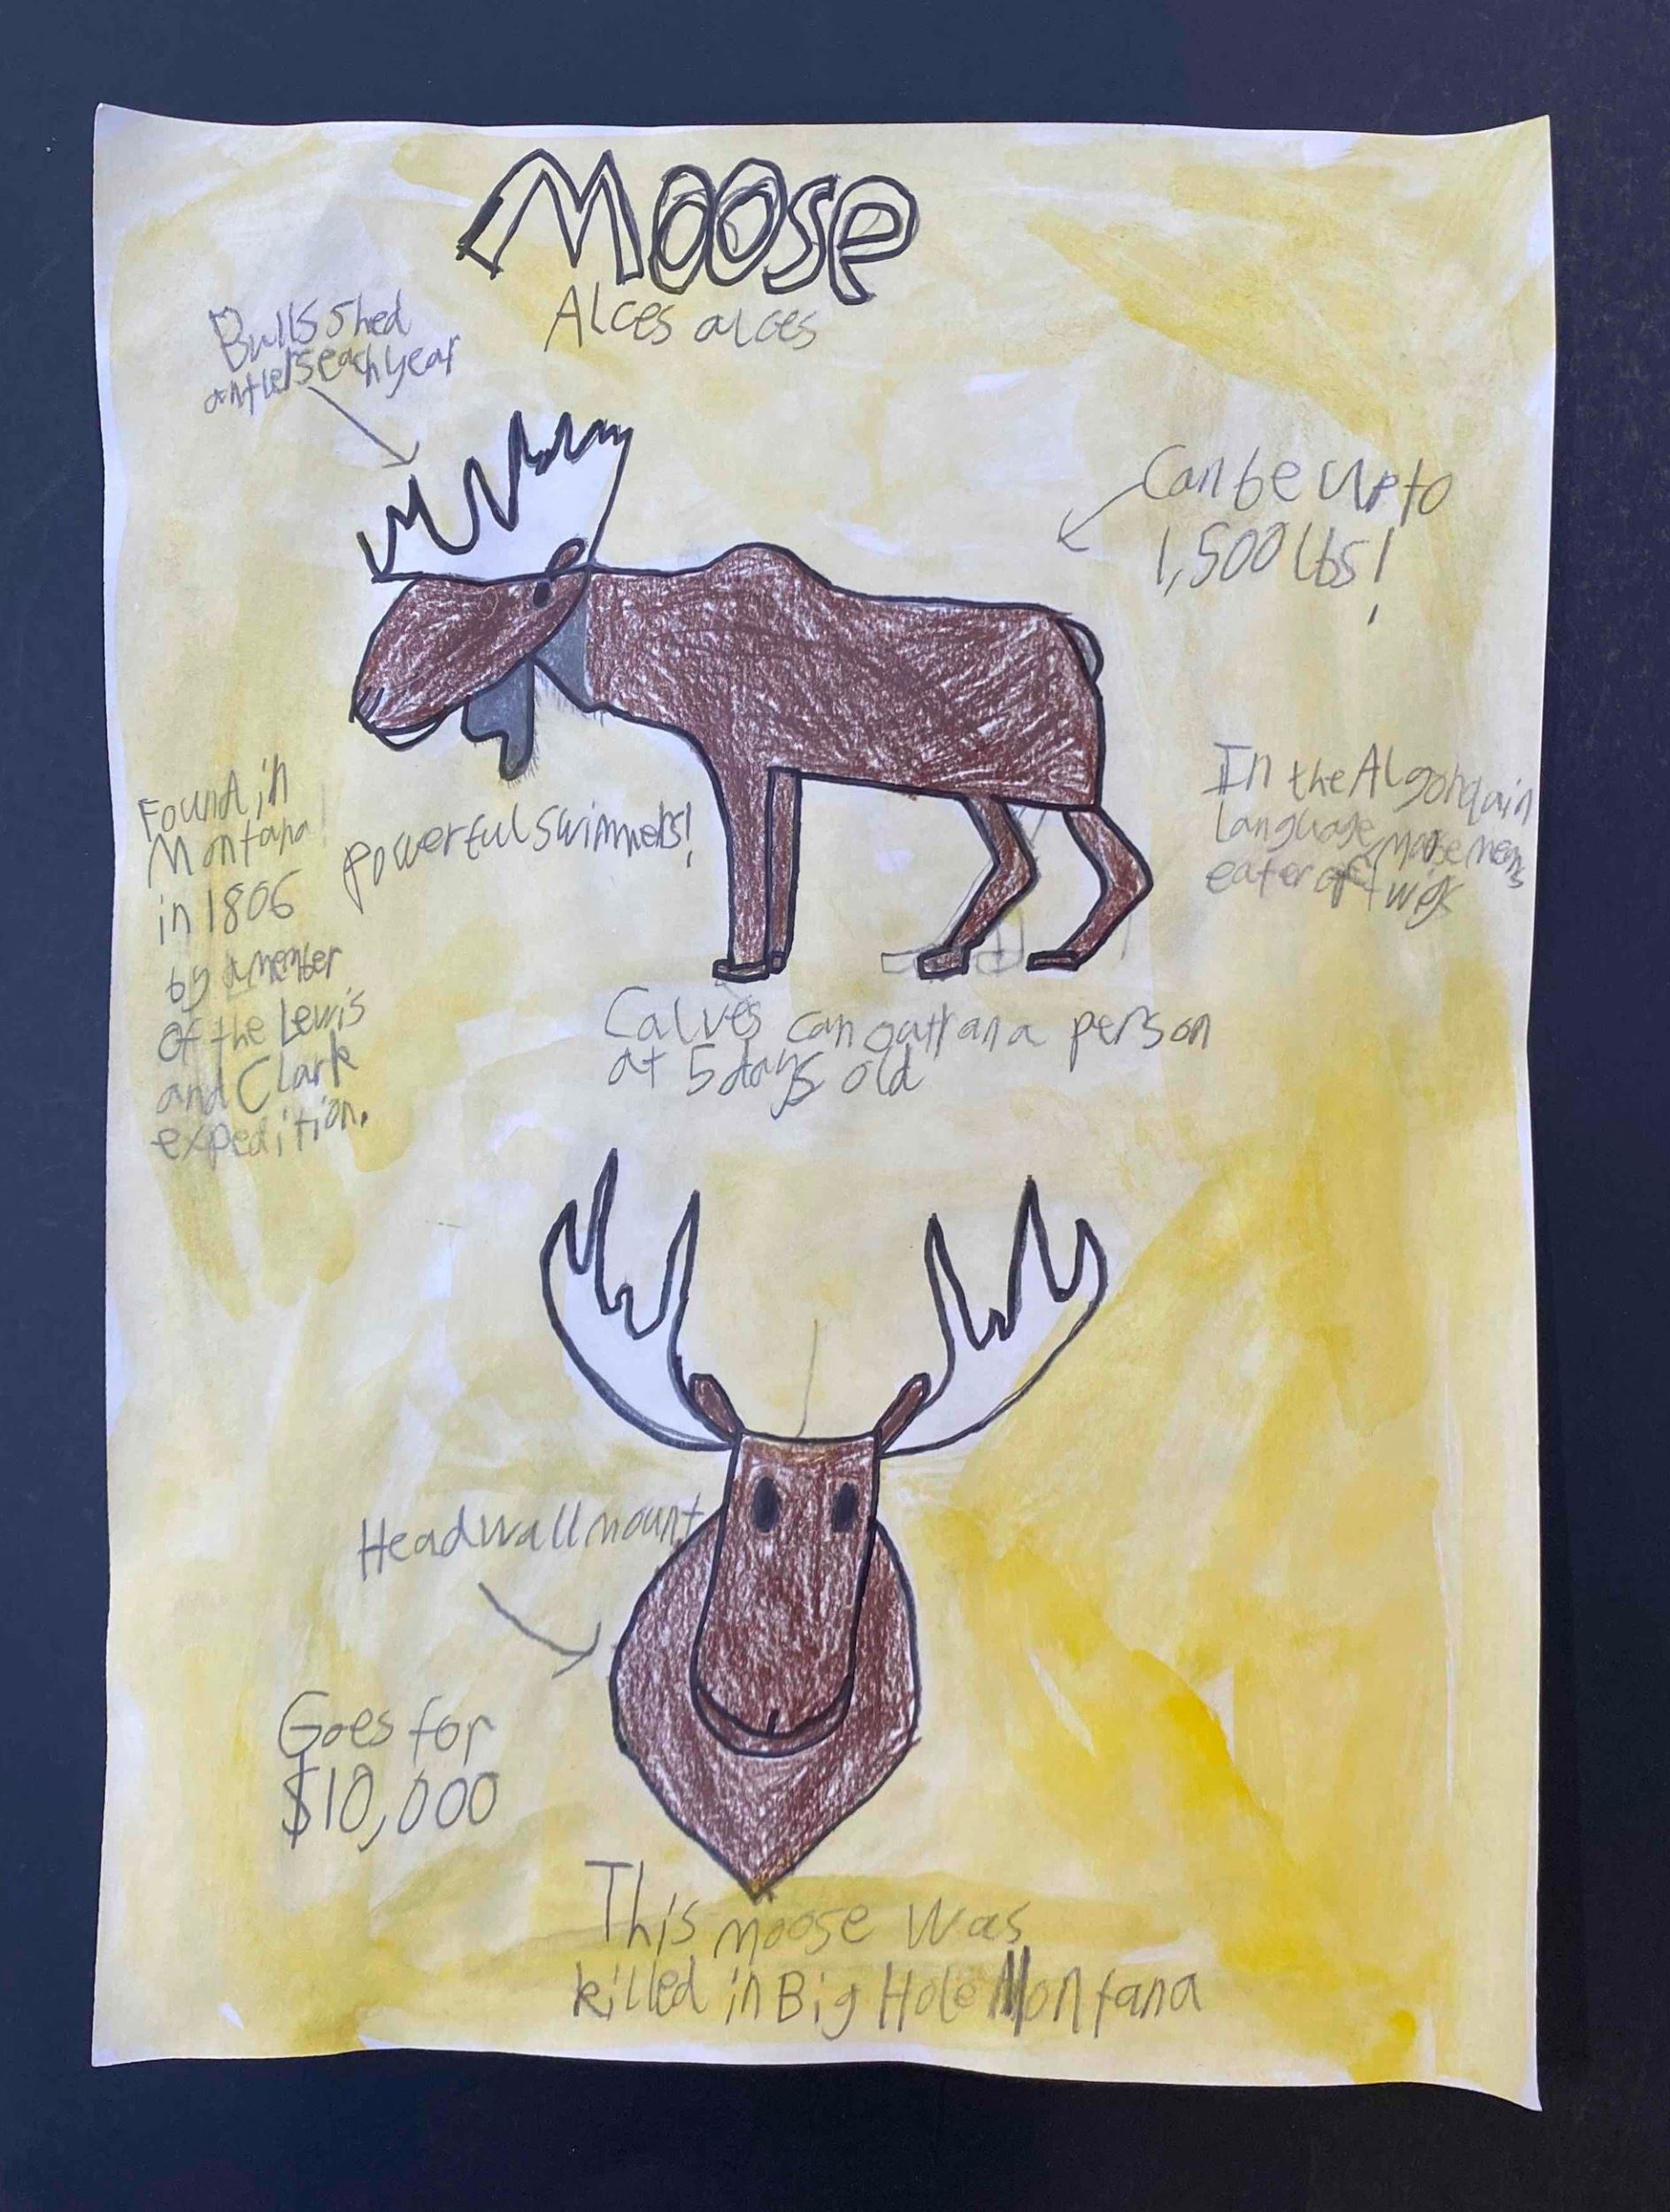 Moose
Alces alces
Bulls shed
antlers each year
Can be up to
1,500 lbs!
Found in
Montana
in 1806
by a member
of the Lewis
and Clark
expedition.
powerful swimmers!
In the Algonquin
language moose means
eater of twigs
Calves can outran a person
at 5 days old
Head wall mount
Goes for
$10,000
This moose was
killed in Big Hole Montana